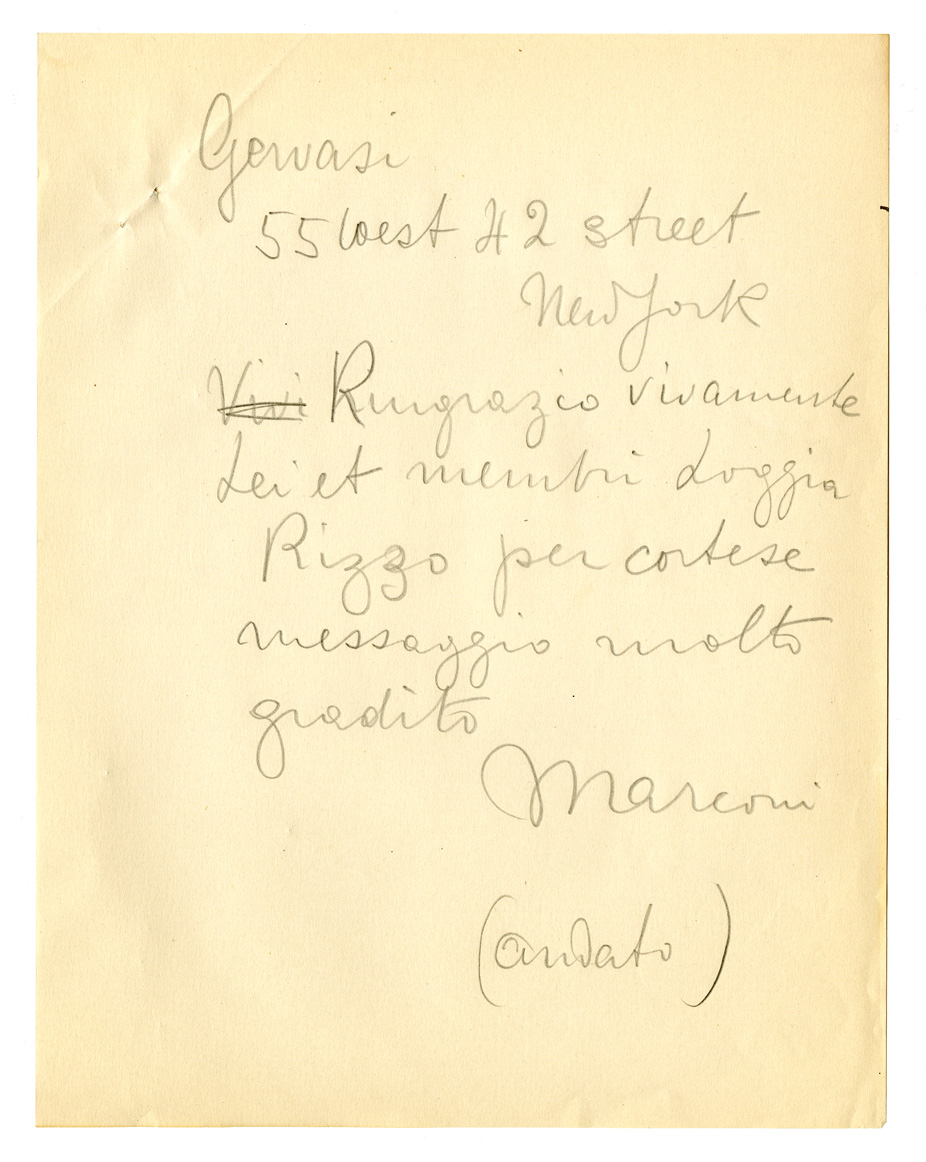 Gervasi
55 West 42 street
New York
Vivi Ringrazio vivamente
Lei et membri Loggia
Rizzo per cortese
messaggio molto
gradito
Marconi
(andato)